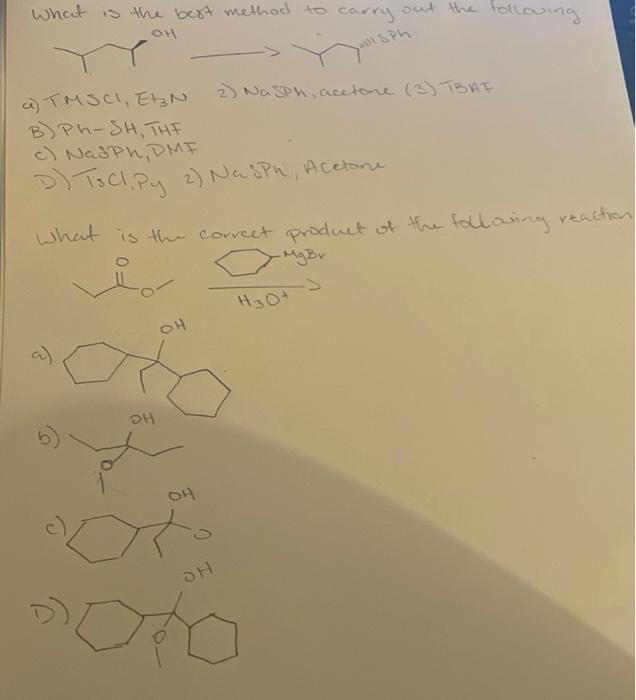 What is the best method to carry out the following
OH
"SPh
a) TMSCl, Et3N 2) NaSPh, acetone (3) TBAF
B) Ph-SH, THF
c) NaSPh, DMF
D) TsCl, Py 2) NaSPh, Acetone
What is the correct product of the following reaction
O
O
MgBr
H3O+
a)
OH
b)
OH
O
c)
OH
O
D)
OH
O